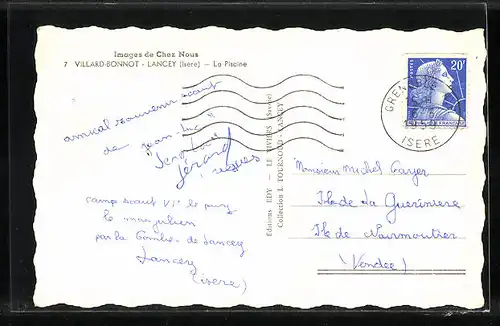 Images de Chez Nous
7 VILLARD-BONNOT - LANCEY (Isère) - La Piscine
amical souvenir scout
de Jean-Luc
Gérard
camp scout VIe le puy
le marjulien
par la Combe-de-Lancey
Lancey
(isère)
Editions EDY - LE VIVIERS (Savoie)
Collection L. TOURNOUD - LANCEY
POSTES
20F
GRENOBLE
ISERE
Monsieur Michel Gayer
Ile de La Guérinière
Ile de Noirmoutier
(Vendée)